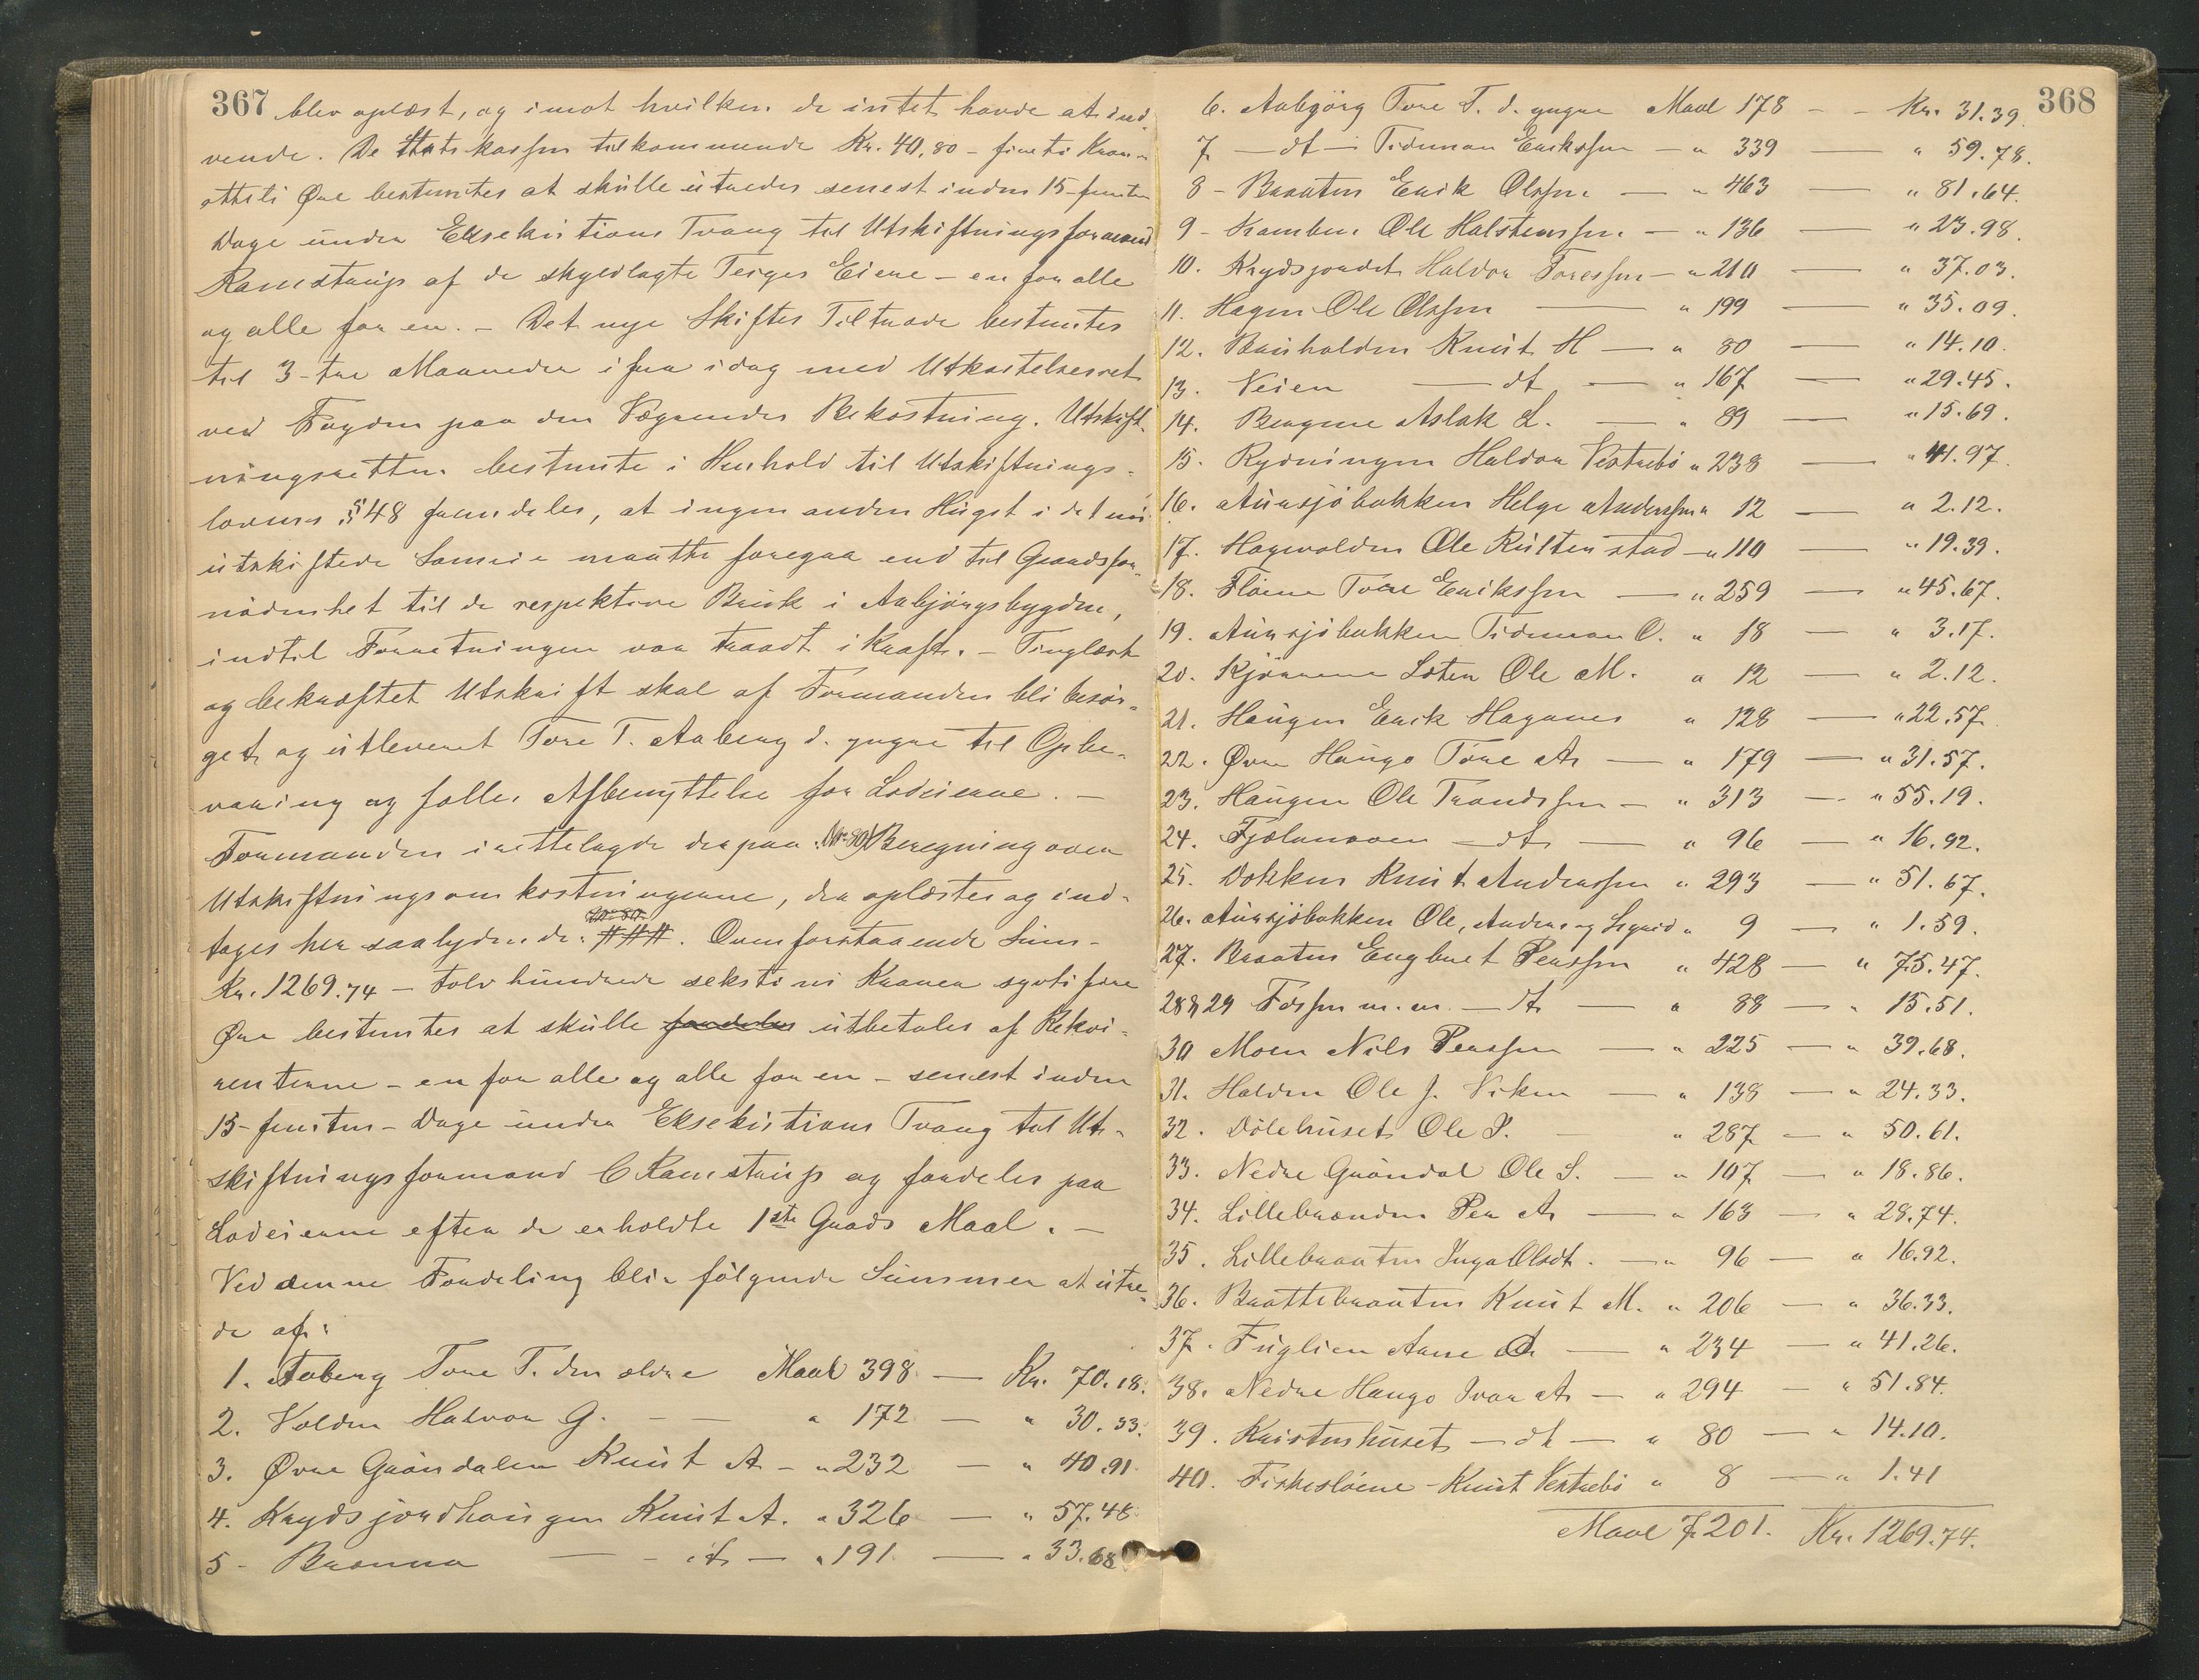 367 blev oplæst, og imot hvilken de intet havde at ind-
vende. De Statskassen tilkommende Kr. 40,80 - firti Kron-
otteti Øre bestemtes at skulle utredes senest inden 15 - femten
Dage under Eksekutions Tvang til Utskiftningsformand
Ramstrup af de skyldlagte Teiges Eiere - en for alle
og alle for en. - Det nye Skiftes Tiltræde bestemtes
til 3 - tre Maaneder ifra idag med Utkastelsesret
ved Fogden paa den Vægrendes Bekostning. Utskift-
ningsretten bestemte i Henhold til Utskiftnings-
lovens § 48 fremdeles, at ingen anden Hugst i det nu
utskiftede Sameie maatte foregaa end til Gaardsfor-
nødenhet til de respektive Bruk i Aabjørgsbygden,
indtil Forretningen var traadt i Kraft. - Tinglæst
og bekræftet Utskrift skal af Formanden bli besør-
get og utleveret Tore T. Aaberg d. yngre til Opbe-
varing og fælles Afbenyttelse for Lodeierne. -
Formanden irettelagde derpaa (No 80) Beregning over
Utskiftningsomkostningerne, der oplæstes og ind-
tages her saalydende: ###. Ovenforstaaende Sum -
Kr. 1269.74 - tolv hundrede seksti ni Kroner sytti fire
Øre bestemtes at skulle fordeles utbetales af Rekvi-
renterne - en for alle og alle for en - senest inden
15 - femten - Dage under Eksekutions Tvang til Ut-
skiftningsformand C Ramstrup og fordeles paa
Lodeierne efter de erholdte 1ste Grads Maal. -
Ved denne Fordeling blir følgende Summer at utre-
de af:
1. Aaberg Tore T. den ældre Maal 398 — Kr. 70.18.
2. Volden Halvor G. — — " 172 — " 30.33.
3. Øvre Grøndalen Knut A - " 232 — " 40.91.
4. Krydsjordhaugen Knut A. " 326 — " 57.48.
5 - Braanna — dt — " 191. — " 33.68
368
6. Aabjørg Tore T. d. yngre Maal 178 - - Kr. 31.39.
7 — dt — Tideman Eriksen — " 339 — " 59.78.
8 - Braaten Erik Olsen — " 463 — " 81.64.
9 - Kamben Ole Halstensen — " 136 — " 23.98.
10. Krydsjordet Haldor Toresen — " 210 — " 37.03.
11. Hagen Ole Olsen — " 199 — " 35.09.
12. Bruholden Knut H — " 80 — " 14.10.
13. Veien — dt — " 167 — " 29.45.
14. Bergene Aslak L. — " 89 — " 15.69.
15. Rydningen Haldor Vestrebø " 238 — " 41.97.
16. Aursjøbakken Helge Andersen " 12 — " 2.12.
17. Hagevolden Ole Rustenstad — " 110 — " 19.39.
18. Fløine Tore Eriksen — " 259 — " 45.67.
19. Aursjøbakken Tideman O. " 18 — " 3.17.
20. Kjørrene Loten Ole M. " 12 — " 2.12.
21. Haugen Erik Haganes " 128 — " 22.57.
22. Øvre Haugo Tore A — " 179 — " 31.57.
23. Haugen Ole Trondsen — " 313 — " 55.19.
24. Fjølamoen — dt — " 96 — " 16.92.
25. Dokken Knut Andersen " 293 — " 51.67.
26. Aursjøbakken Ole, Anders og Sigrid " 9 — " 1.59.
27. Braaten Engbret Persen " 428 — " 75.47.
28 & 29 Fossen m. m. — dt — " 88 — " 15.51.
30 Moen Nils Persen — " 225 — " 39.68.
31. Halden Ole J. Viken — " 138 — " 24.33.
32. Dølehuset Ole P. — " 287 — " 50.61.
33. Nedre Grøndal Ole S. — " 107 — " 18.86.
34. Lillebrænden Per A — " 163 — " 28.74.
35. Lillebraaten Inga Olsdt. — " 96 — " 16.92.
36. Brattebraaten Knut M. " 206 — " 36.33.
37. Fuglien Arne A — " 234 — " 41.26.
38. Nedre Haugo Ivar A — " 294 — " 51.84.
39. Kristenhuset — dt — " 80 — " 14.10.
40. Fiskesløine - Knut Vestrebø " 8 — " 1.41
Maal 7201. Kr. 1269.74.